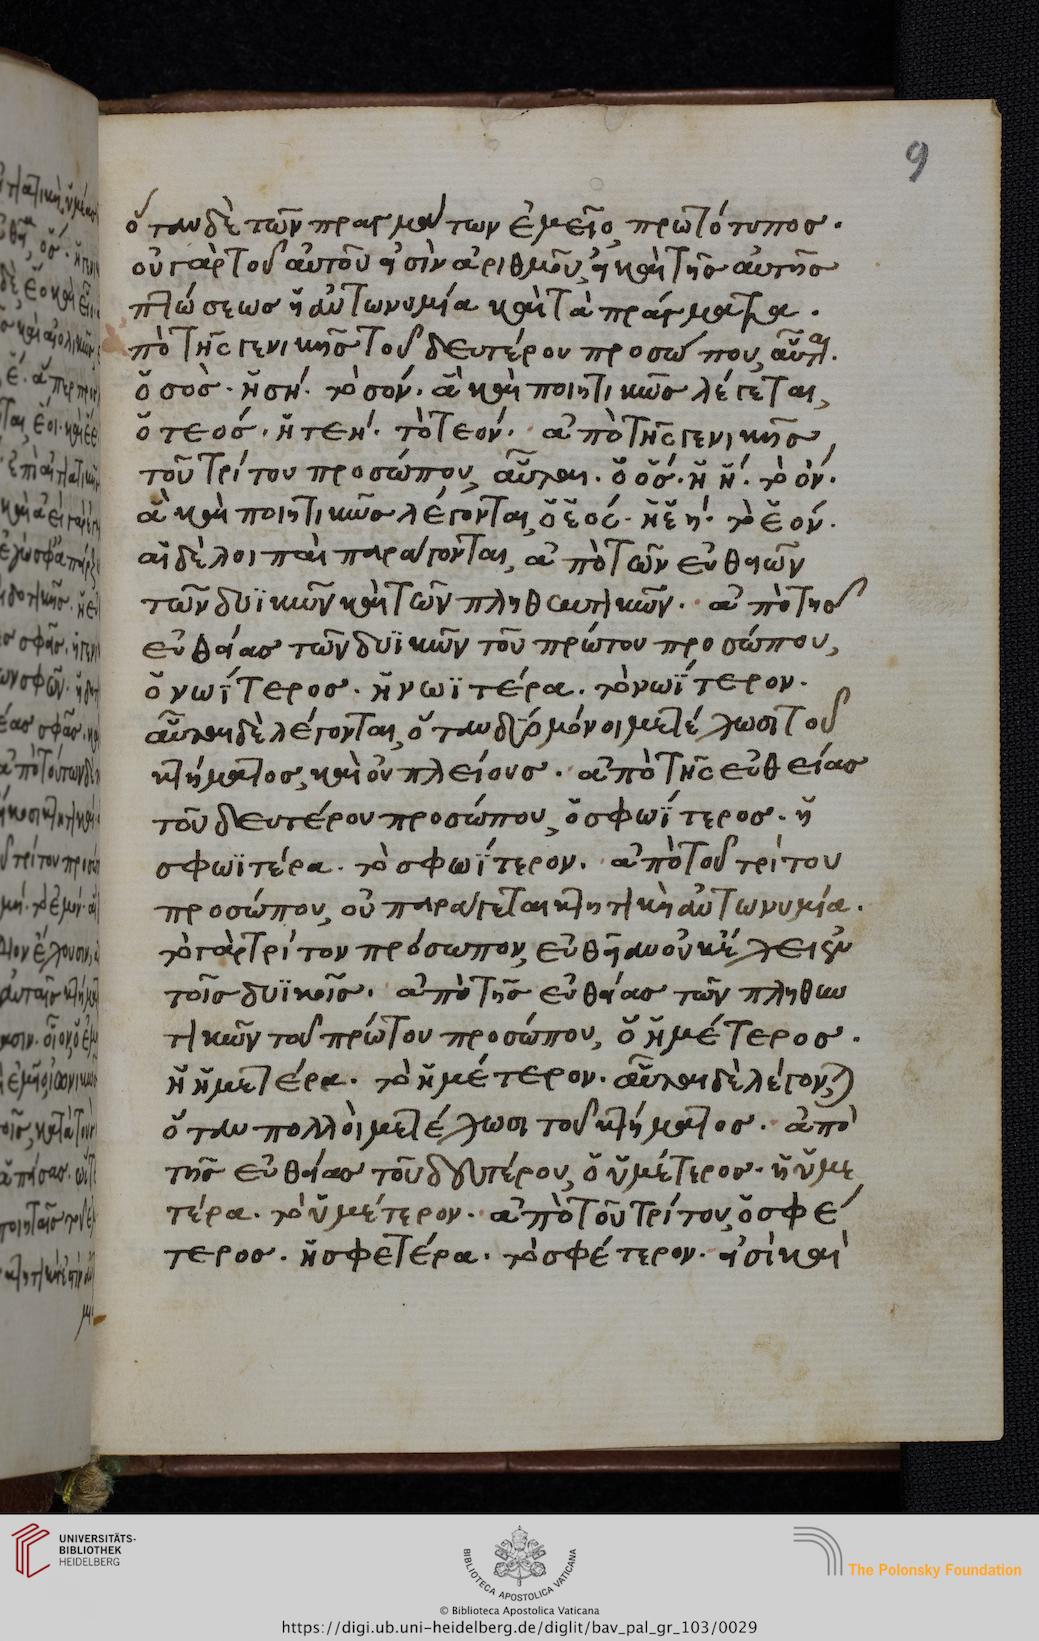 9
ὅταν δὲ τῶν πραγμάτων ἐμεῖο πρωτότυπος.
οὐ γὰρ τοῦ αὐτοῦ εἰσὶν ἀριθμοῦ, ἢ καὶ τῆς αὐτῆς
πτώσεως ἡ ἀντωνυμία καὶ τὰ πράγματα.
πὸ τῆς γενικῆς τοῦ δευτέρου προσώπου,
ὁ σὸς. ἡ σή. τὸ σόν. ἃ καὶ ποιητικῶς λέγεται,
ὁ τεός. ἡ τεή. τὸ τεόν. ἀπὸ τῆς γενικῆς
τοῦ τρίτου προσώπου, αὗται. ὁ ὅς. ἡ ἥ. τὸ ὅν.
ἃ καὶ ποιητικῶς λέγονται, ὁ ἑός. ἡ ἑή. τὸ ἑόν.
αἱ δὲ λοιπαὶ παράγονται, ἀπὸ τῶν εὐθειῶν
τῶν δυϊκῶν καὶ τῶν πληθυντικῶν. ἀπὸ τῆς
εὐθείας τῶν δυϊκῶν τοῦ πρώτου προσώπου,
ὁ νωΐτερος. ἡ νωϊτέρα. τὸ νωΐτερον.
αὗται δὲ λέγονται, ὅταν δύο μόνοι μετέχωσι τοῦ
κτήματος, καὶ οὐ πλείους. ἀπὸ τῆς εὐθείας
τοῦ δευτέρου προσώπου, ὁ σφωΐτερος. ἡ
σφωϊτέρα. τὸ σφωΐτερον. ἀπὸ τοῦ τρίτου
προσώπου, οὐ παράγεται κτητικὴ ἀντωνυμία.
τὸ γὰρ τρίτον πρόσωπον, εὐθεῖαν οὐκ ἔχει ἐν
τοῖς δυϊκοῖς. ἀπὸ τῆς εὐθείας τῶν πληθυν
τικῶν τοῦ πρώτου προσώπου, ὁ ἡμέτερος.
ἡ ἡμετέρα. τὸ ἡμέτερον. αὗται δὲ λέγονται,
ὅταν πολλοὶ μετέχωσι τοῦ κτήματος. ἀπὸ
τῆς εὐθείας τοῦ δευτέρου, ὁ ὑμέτερος. ἡ ὑμε
τέρα. τὸ ὑμέτερον. ἀπὸ τοῦ τρίτου, ὁ σφέ
τερος. ἡ σφετέρα. τὸ σφέτερον. εἰσὶ καὶ
UNIVERSITÄTS-
BIBLIOTHEK
HEIDELBERG
BIBLIOTECA APOSTOLICA VATICANA
The Polonsky Foundation
© Biblioteca Apostolica Vaticana
https://digi.ub.uni-heidelberg.de/diglit/bav_pal_gr_103/0029